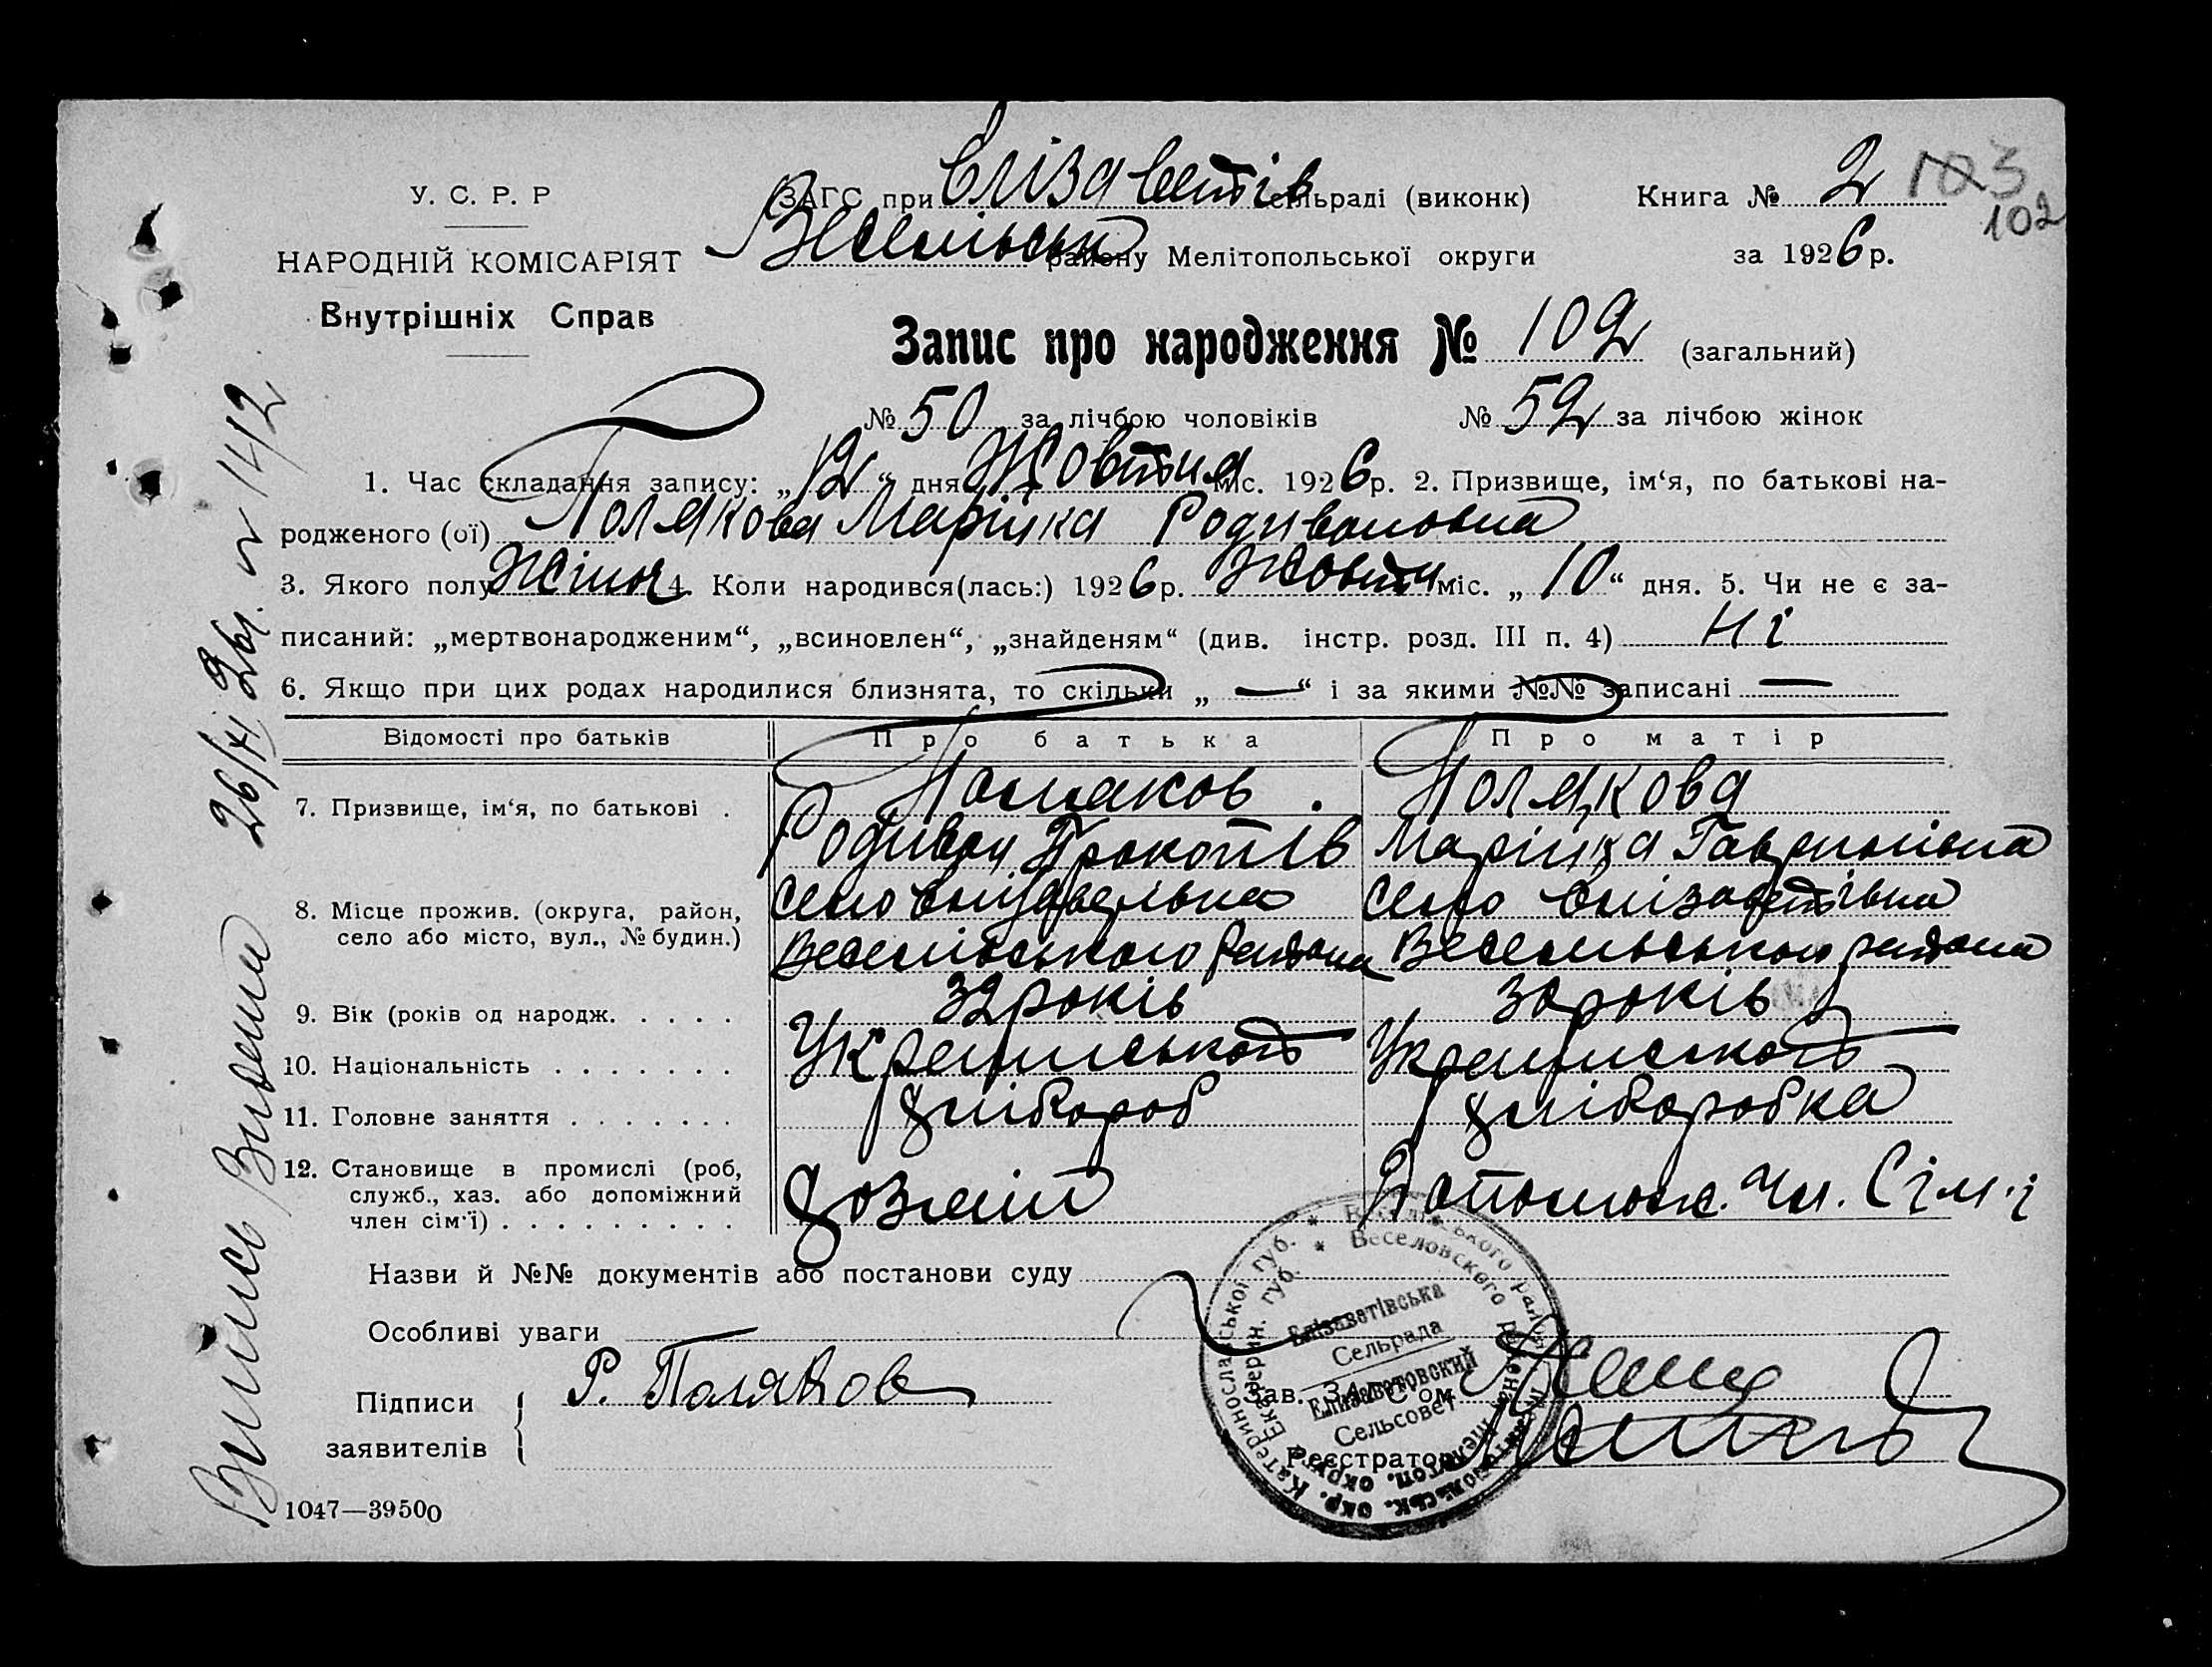 У. С. Р. Р
НАРОДНІЙ КОМІСАРІЯТ
Внутрішніх Справ
ЗАГС при Єлізаветів сельраді (виконк)
Весельськ району Мелітопольської округи
Книга № 2 103
102
за 1926 р.
Запис про народження № 102 (загальний)
№ 50 за лічбою чоловіків № 52 за лічбою жінок
1. Час складання запису: „12“ дня Жовтня міс. 1926 р. 2. Призвище, ім‘я, по батькові на-
родженого (ої) Полякова Марійка Родивоновна
3. Якого полу Жіноч 4. Коли народився(лась:) 1926 р. Жовтн міс. „10“ дня. 5. Чи не є за-
писаний: „мертвонародженим“, „всиновлен“, „знайденям“ (див. інстр. розд. III п. 4) Ні
6. Якщо при цих родах народилися близнята, то скільки „ — “ і за якими №№ записані —
Відомості про батьків Про батька Про матір
7. Призвище, ім‘я, по батькові . Поляков. Полякова
Родивон Прокопів Марійка Гаврилівна
8. Місце прожив. (округа, район, село або місто, вул., № будин.) село Єлізаветівка село Єлізаветівка
Весельського района Весельського района
9. Вік (років од народж. . . . . 32 років 30 років
10. Національність . . . . . . . Українського Українського
11. Головне заняття . . . . . . . хлібороб хліборобка
12. Становище в промислі (роб, служб., хаз. або допоміжний член сім‘ї) . . . . . . . . . хозяїн Допоможс. чл. Сім'ї
Назви й №№ документів або постанови суду
Особливі уваги
Підписи заявителів { Р. Поляков
Зав. ЗАГС‘ом
Реєстратор
1047—39500
Випись Видана 26/XI 26р. № 142
Катеринославської губ. * Веселівського району Мелітопольськ. окр.
Екатерин. губ. * Веселовского района Мелитоп. округа
Елізаветівська
Сельрада
Елизаветовский
Сельсовет